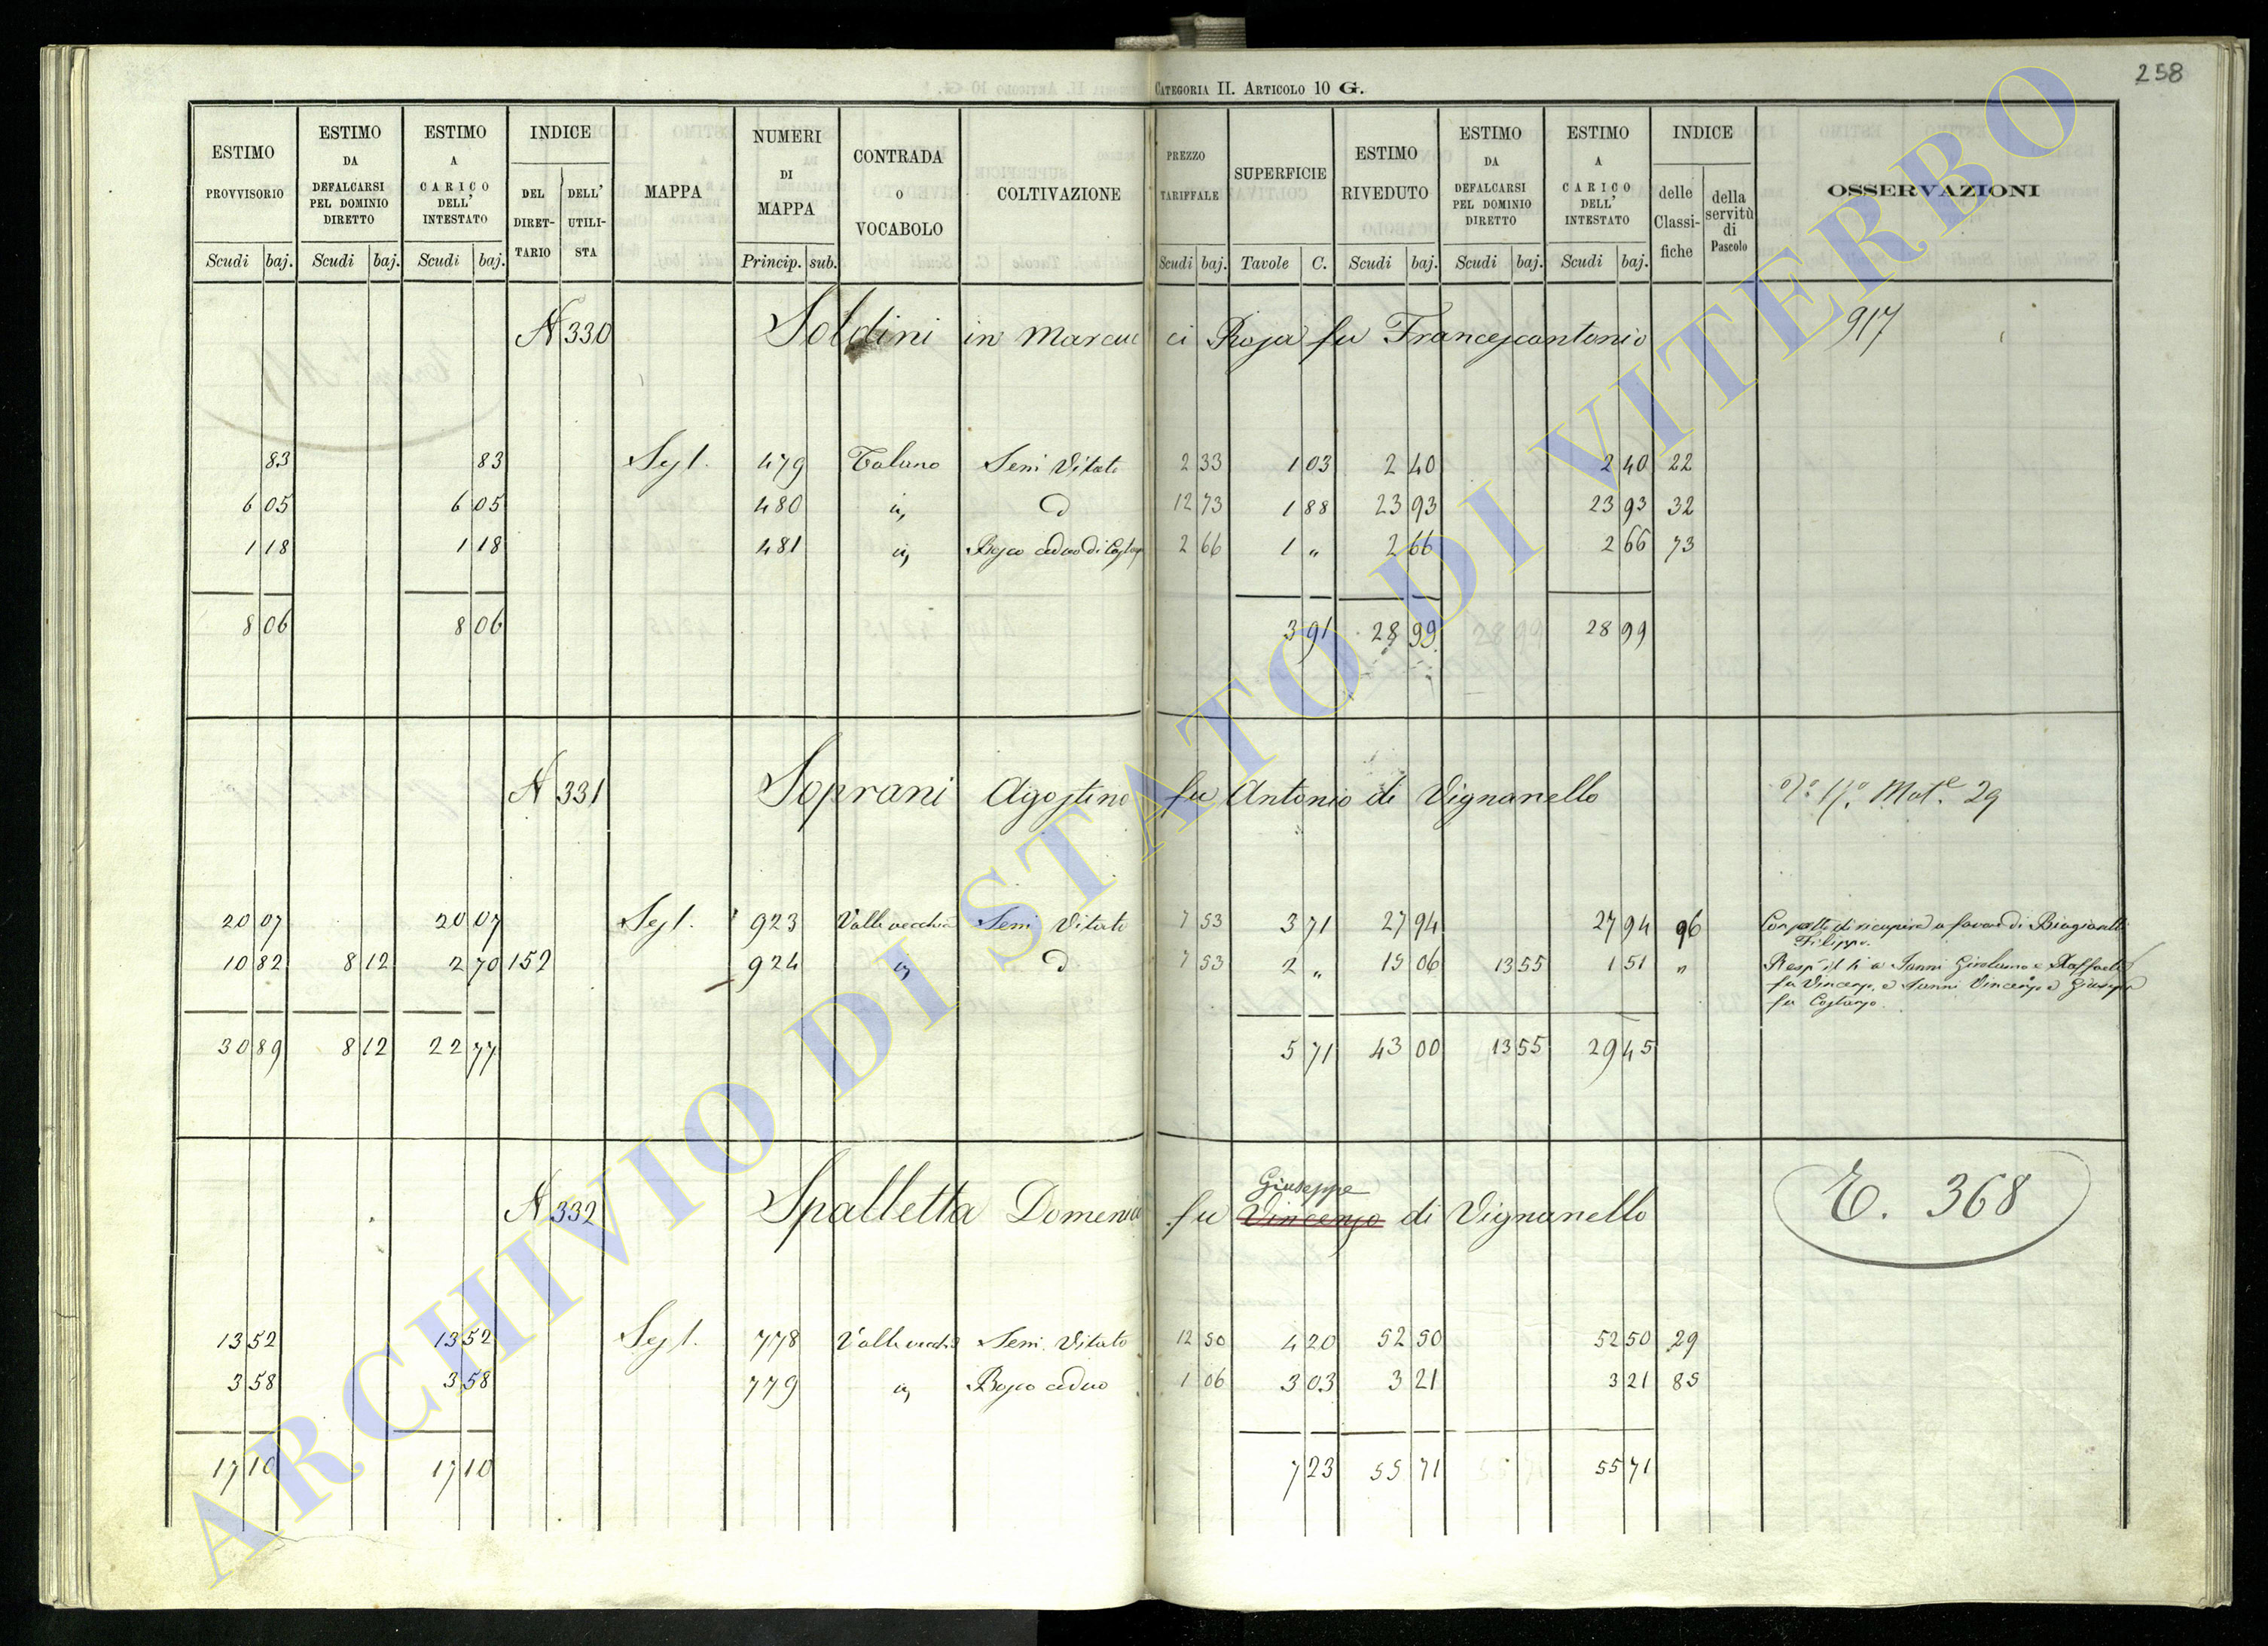 258
CATEGORIA II. ARTICOLO 10 G.
ESTIMO PROVVISORIO Scudi baj.
ESTIMO DA DEFALCARSI PEL DOMINIO DIRETTO Scudi baj.
ESTIMO A CARICO DELL' INTESTATO Scudi baj.
INDICE DEL DIRET- TARIO DELL' UTILI- STA
MAPPA
NUMERI DI MAPPA Princip. sub.
CONTRADA o VOCABOLO
COLTIVAZIONE
PREZZO TARIFFALE Scudi baj.
SUPERFICIE Tavole C.
ESTIMO RIVEDUTO Scudi baj.
ESTIMO DA DEFALCARSI PEL DOMINIO DIRETTO Scudi baj.
ESTIMO A CARICO DELL' INTESTATO Scudi baj.
INDICE delle Classi- fiche della servitù di Pascolo
OSSERVAZIONI
N 330 Soldini in Marcucci Rosa fu Francescantonio 917
83 83 Sez I. 479 Talano Sem Vitato 2 33 1 03 2 40 2 40 22
6 05 6 05 480 id d 12 73 1 88 23 93 23 93 32
1 18 1 18 481 id Bosco ceduo di 2 66 1 " 2 66 2 66 73
8 06 8 06 3 91 28 99 28 99
N 331 Soprani Agostino fu Antonio di Vignanello Mat.e 29
20 07 20 07 Sez I. 923 Valle vecchia Sem Vitato 7 53 3 71 27 94 27 94 96 Con patto di ricupera a favore di Biagiarelli
Filippo.
10 82 8 12 2 70 152 924 id d 7 53 2 " 15 06 13 55 1 51 " a Ianni Girolamo e Raffaele
fu Vincenzo, e Ianni Vincenzo e Giuseppe
fu Costanzo.
30 89 8 12 22 77 5 71 43 00 13 55 29 45
Giuseppe
N 332 Spalletta Domenico fu Vincenzo di Vignanello E. 368
13 52 13 52 Sez I. 778 Valle vecchia Sem. Vitato 12 50 4 20 52 50 52 50 29
3 58 3 58 779 id Bosco ceduo 1 06 3 03 3 21 3 21 85
17 10 17 10 7 23 55 71 55 71
ARCHIVIO DI STATO DI VITERBO